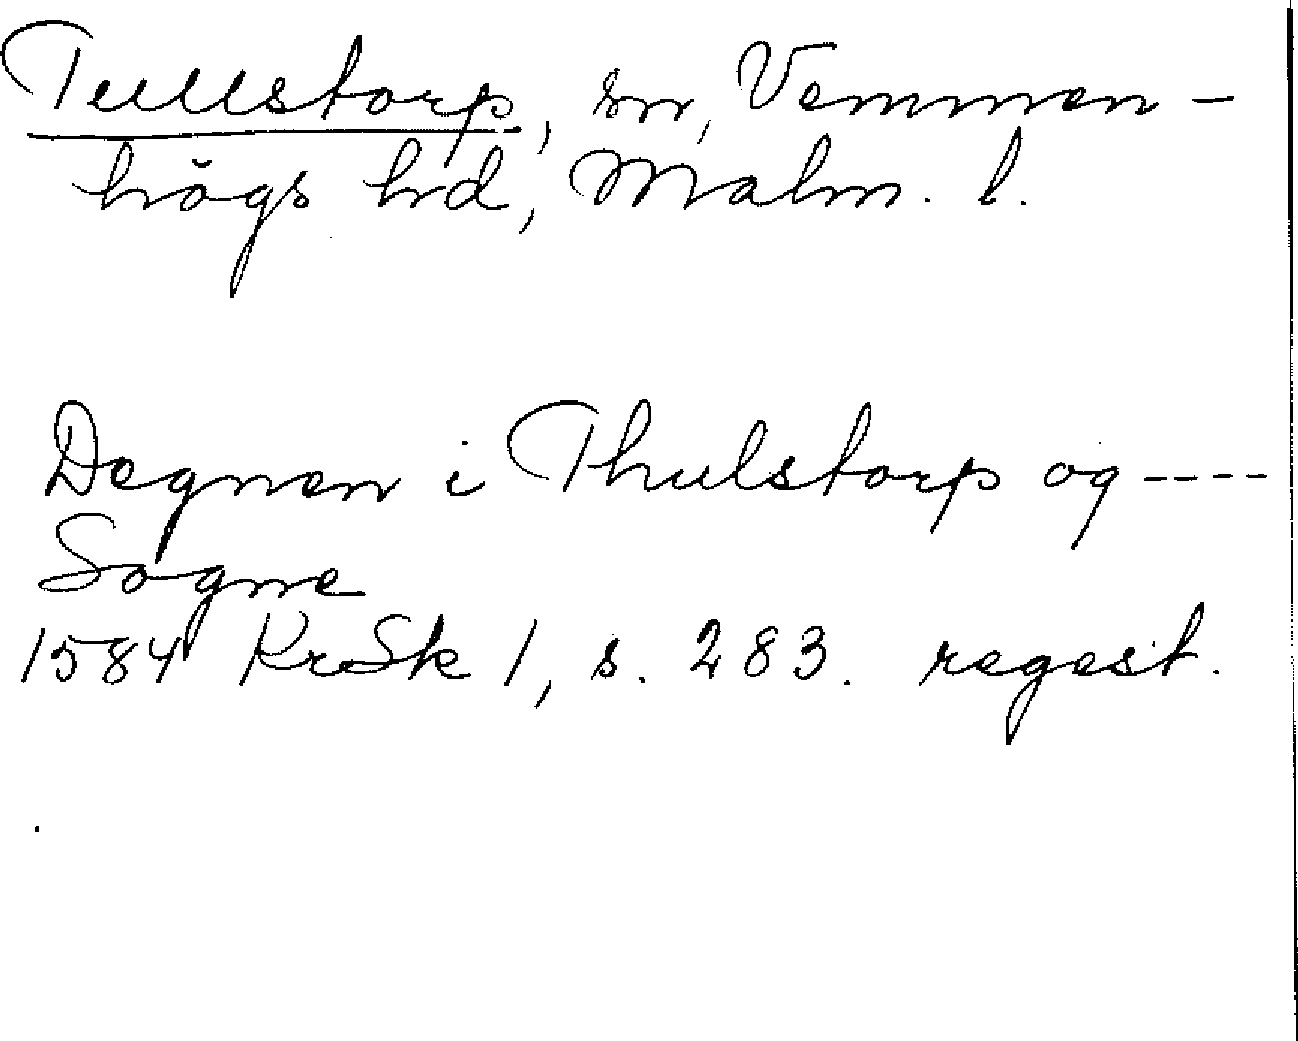 Tullstorp, sn, Vemmen-
högs hd, Malm. l.
Degnen i Thulstorp og ----
Sogne
1584 KrSk 1, s. 283. regest.